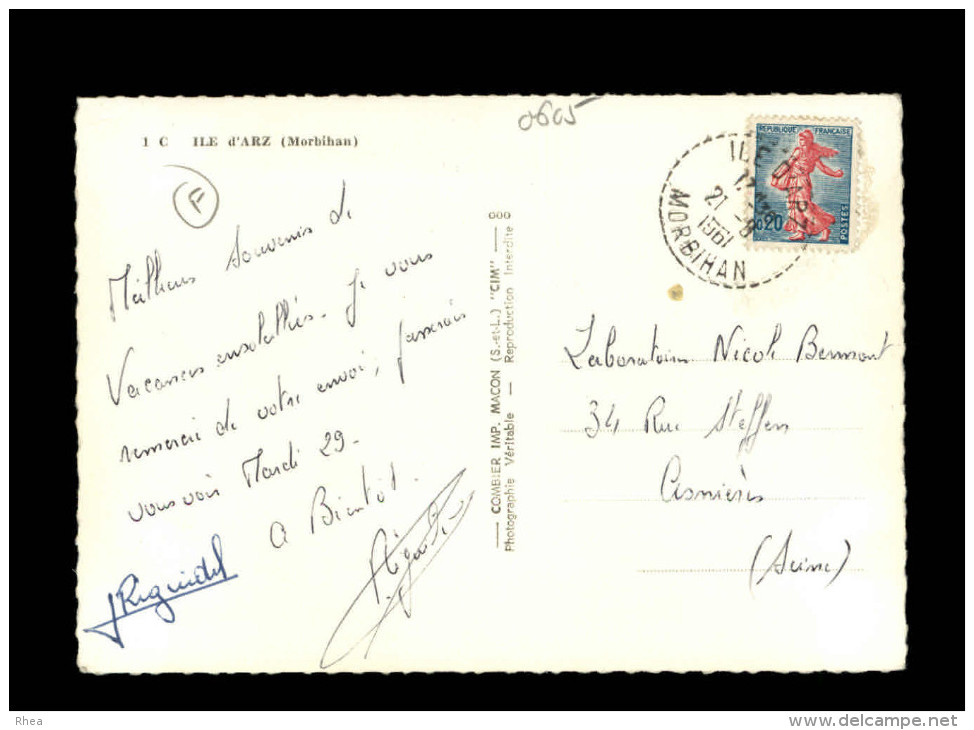 0605
1 C ILE d'ARZ (Morbihan)
F
Meilleurs Souvenirs de
Vacances ensoleillés. Je vous
remercie de votre envoi, passerais
vous voir Mardi 29-
a Bientôt.
JRiguidel
COMBIER IMP. MACON (S.-et-L.) "CIM"
Photographie Véritable — Reproduction Interdite
REPUBLIQUE FRANÇAISE
0,20
POSTES
21 -8
1961
MORBIHAN
Laboratoire Nicol
34 Rue Steffen
Asnières
(Seine)
Rhea
www.delcampe.net